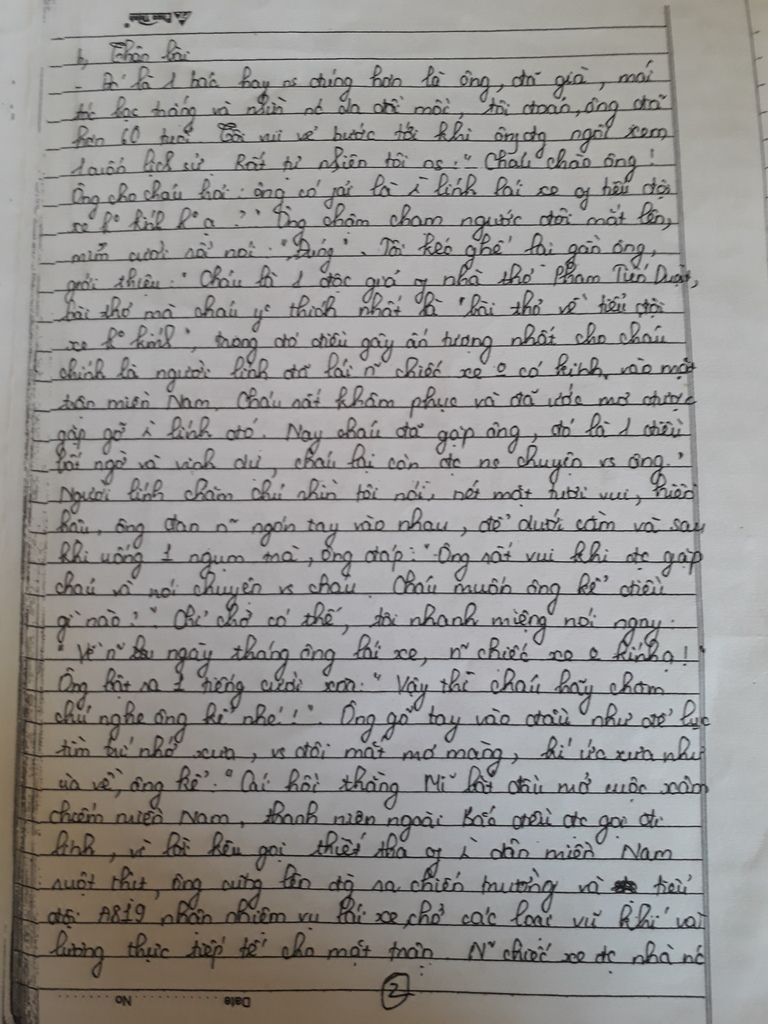 b, Thân bài
- Đó là 1 bác hay ns đúng hơn là ông, đã già, mái
tóc bạc trắng và nhìn nó đã đồi mồi, tôi đoán, ông đã
hơn 60 tuổi. Tôi vui vẻ bước tới khi ông đg ngồi xem
1 cuốn lịch sử. Rất tự nhiên tôi ns: "Cháu chào ông!
Ông cho cháu hỏi: ông có phải là ng lính lái xe of tiểu đội
xe ko kính ko ạ?" Ông chậm chạm ngước đôi mắt lên,
mỉm cười rồi nói: "Đúng". Tôi kéo ghế lại gần ông,
giới thiệu: "Cháu là 1 độc giả of nhà thơ Phạm Tiến Duật,
bài thơ mà cháu yo thích nhất là "bài thơ về tiểu đội
xe ko kính", trong đó điều gây ấn tượng nhất cho cháu
chính là người lính đã lái n~ chiếc xe o có kính vào mặt
trận miền Nam. Cháu rất khâm phục và đã ước mơ được
gặp gỡ lính đó. Nay cháu đã gặp ông, đó là 1 điều
bất ngờ và vinh dự, cháu lại còn đc ns chuyện vs ông."
Người lính chăm chú nhìn tôi nói, nét mặt tươi vui, hiền
hậu, ông đan n~ ngón tay vào nhau, để dưới cằm và sau
khi uống 1 ngụm trà, ông đáp: "Ông rất vui khi đc gặp
cháu và nói chuyện vs cháu. Cháu muốn ông kể điều
gì nào?" Chỉ chờ có thế, tôi nhanh miệng nói ngay:
"Về n~ ngày tháng ông lái xe, n~ chiếc xe o kính ạ!"
Ông bật ra 1 tiếng cười xòa: "Vậy thì cháu hãy chăm
chú nghe ông kể nhé!". Ông gõ tay vào đầu như để lục
tìm trí nhớ xưa, vs đôi mắt mơ màng, kí ức xưa như
ùa về, ông kể: "Cái hồi thằng Mĩ bắt đầu mở cuộc xâm
chiếm miền Nam, thanh niên ngoài Bắc đều đc gọi đi
lính, vì lời kêu gọi thiết tha of dân miền Nam
ruột thịt, ông cũng lên đg ra chiến trường và tiểu
đội A819 nhận nhiệm vụ lái xe, chở các loại vũ khí với
lương thực tiếp tế cho mặt trận. N~ chiếc xe đc nhà nc
2
Date No